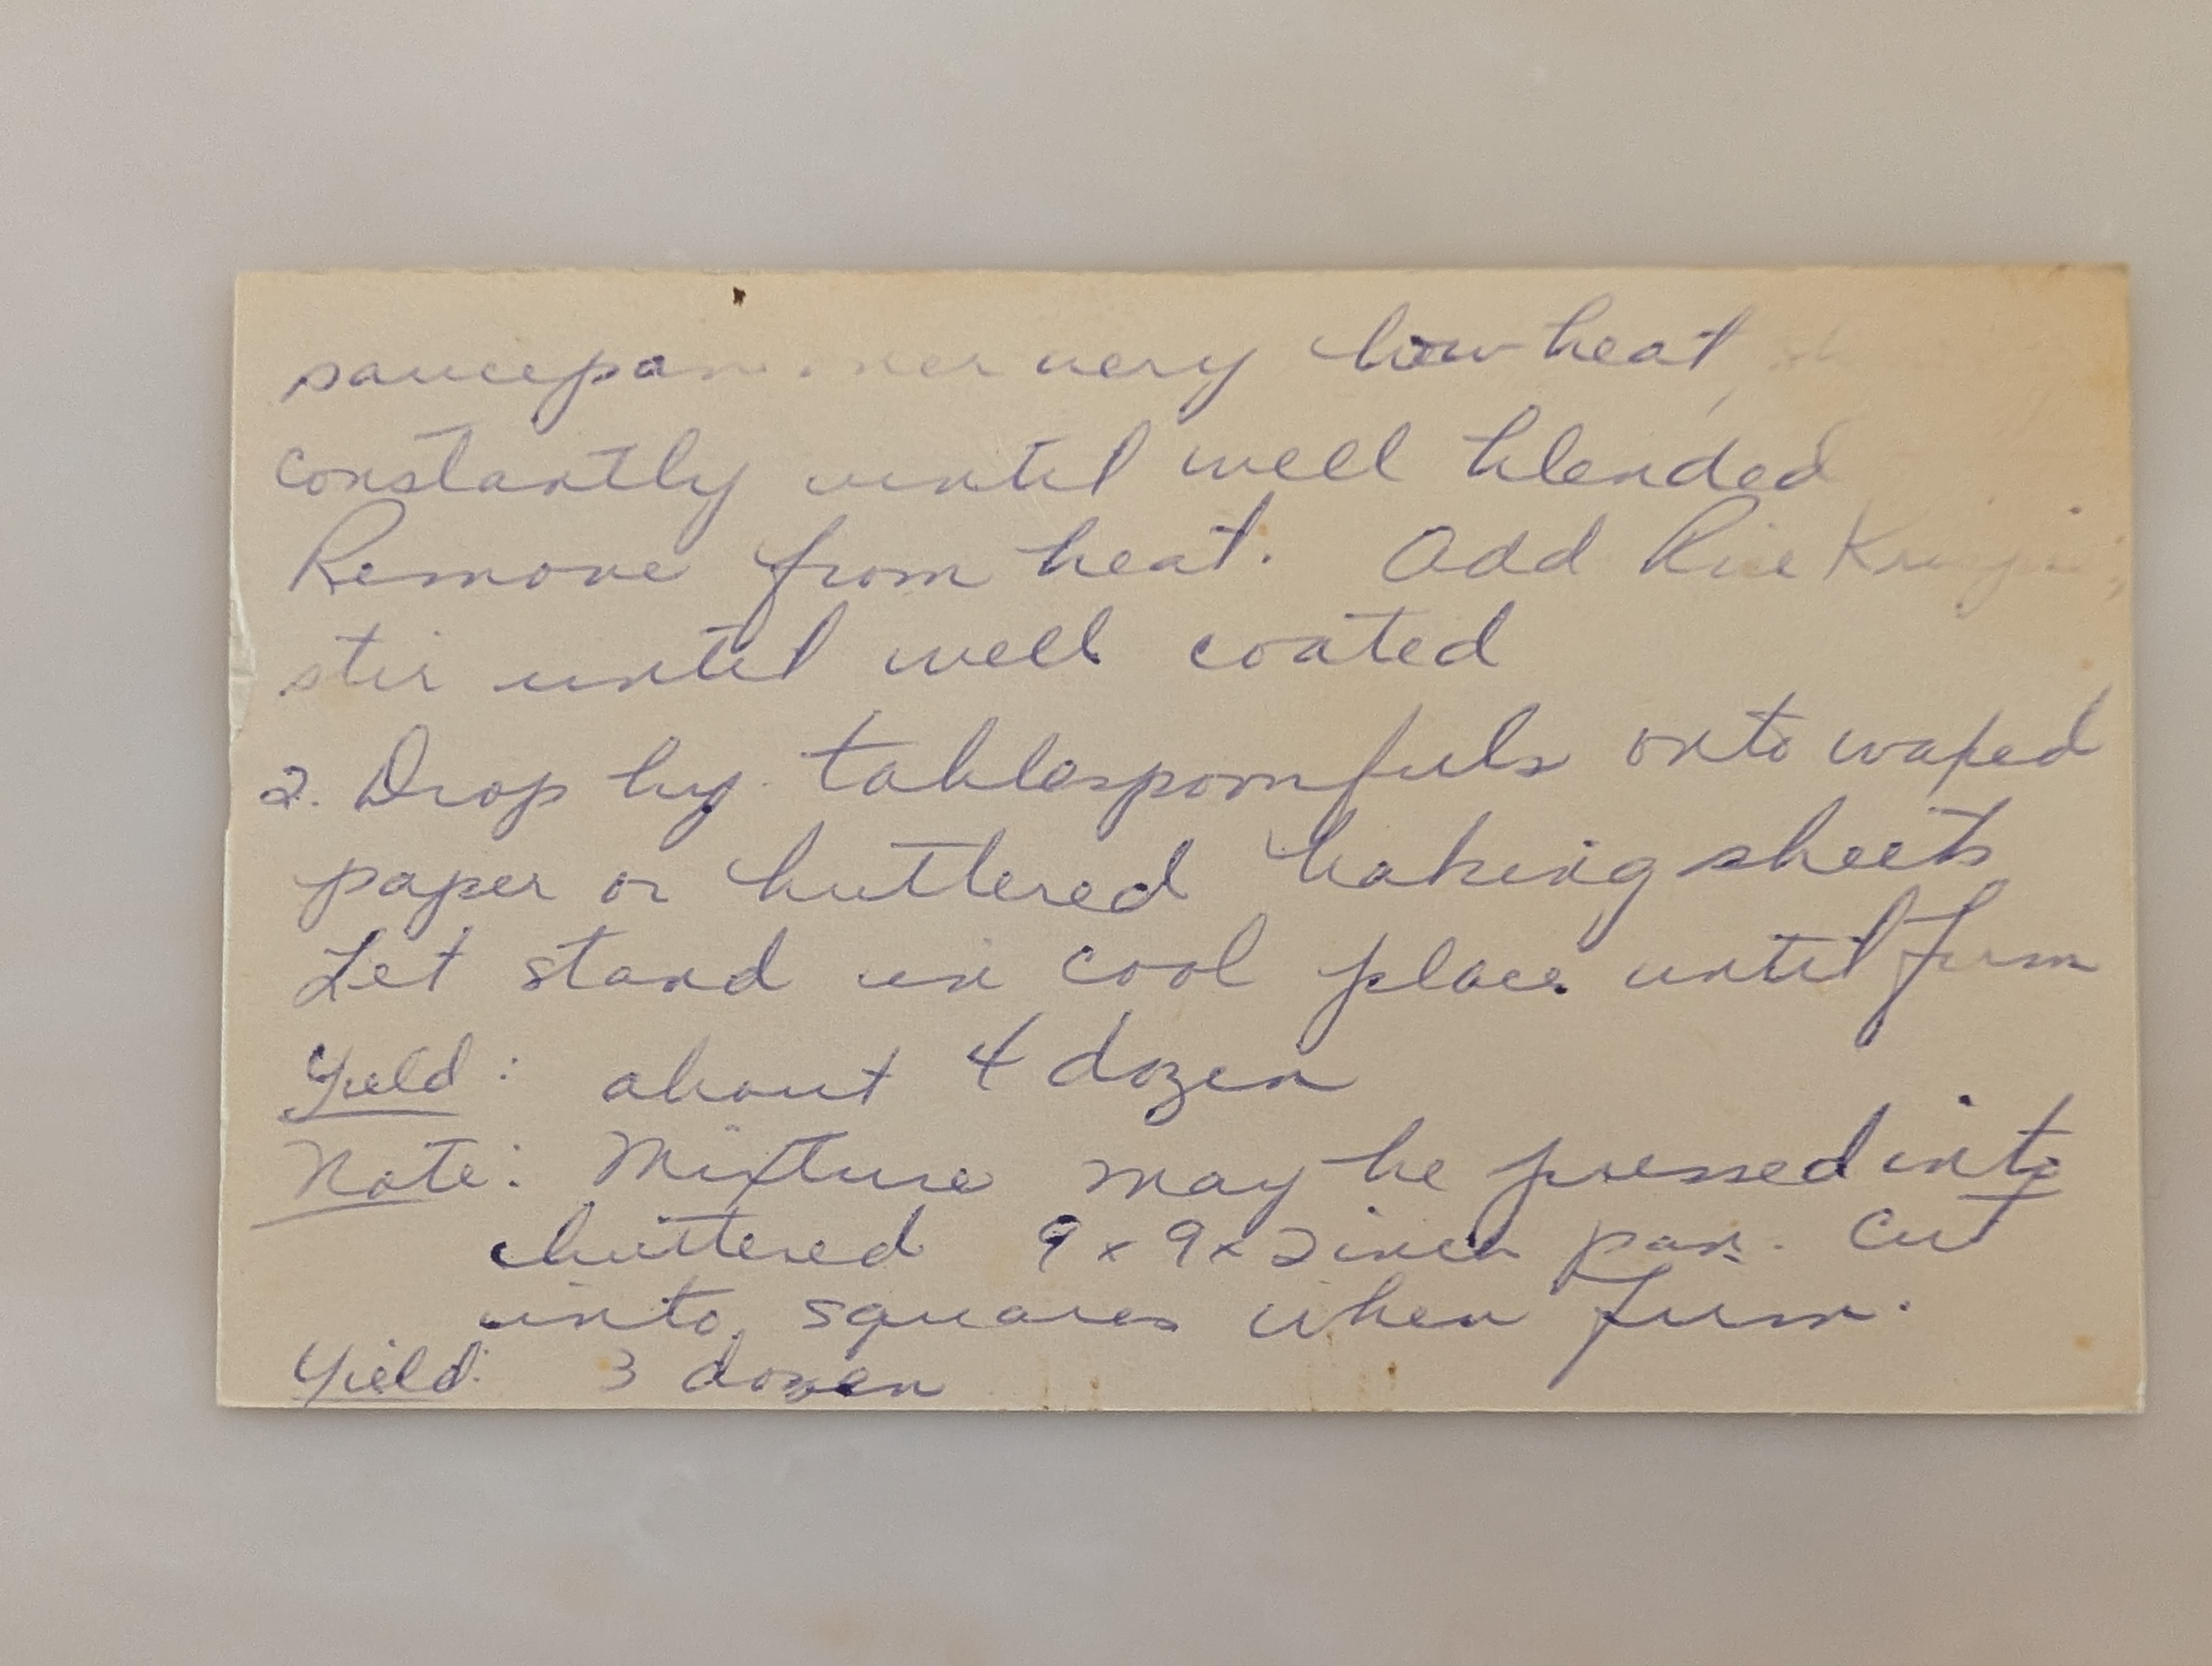 saucepan over very low heat,
constantly until well blended
Remove from heat. Add Rice Krispies,
stir until well coated
2. Drop by tablespoonfuls onto waxed
paper or buttered baking sheets
Let stand in cool place until firm
Yield: about 4 dozen
Note: Mixture may be pressed into
buttered 9x9x2 inch pan. Cut
into squares when firm.
Yield: 3 dozen